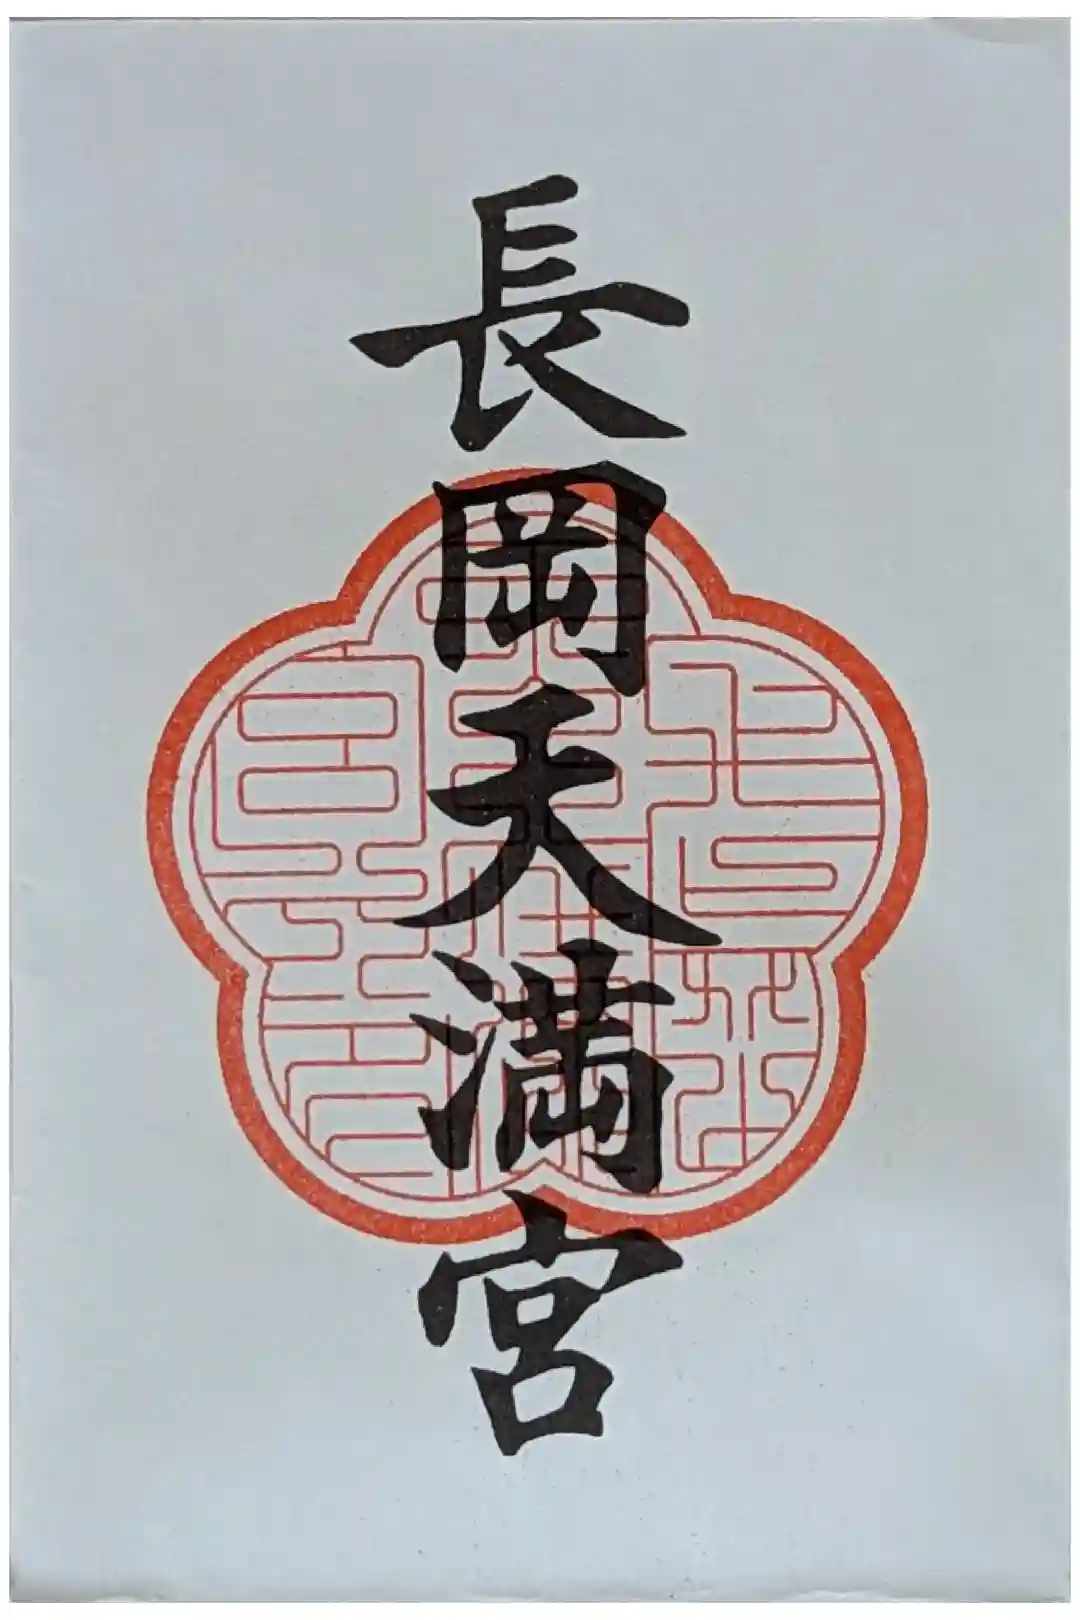 長岡天満宮